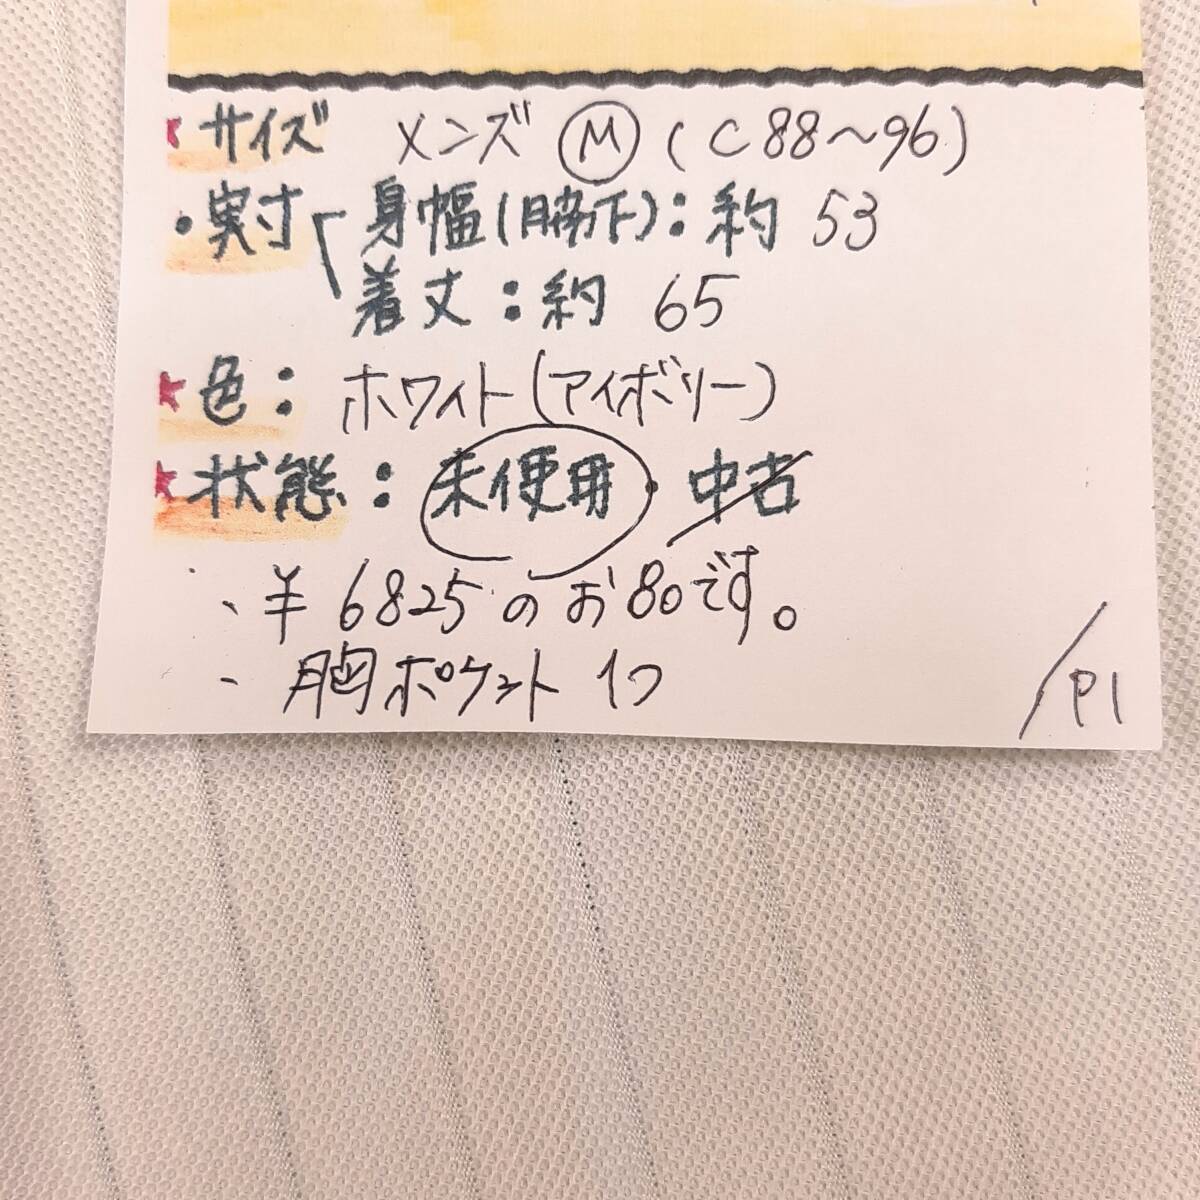 ★サイズ メンズ Ⓜ (C88〜96)
・実寸「身幅(脇下):約 53
着丈:約 65
★色: ホワイト(アイボリー)
★状態:未使用・中古
、¥6825のお80です。
、胸ポケット1つ
/P1